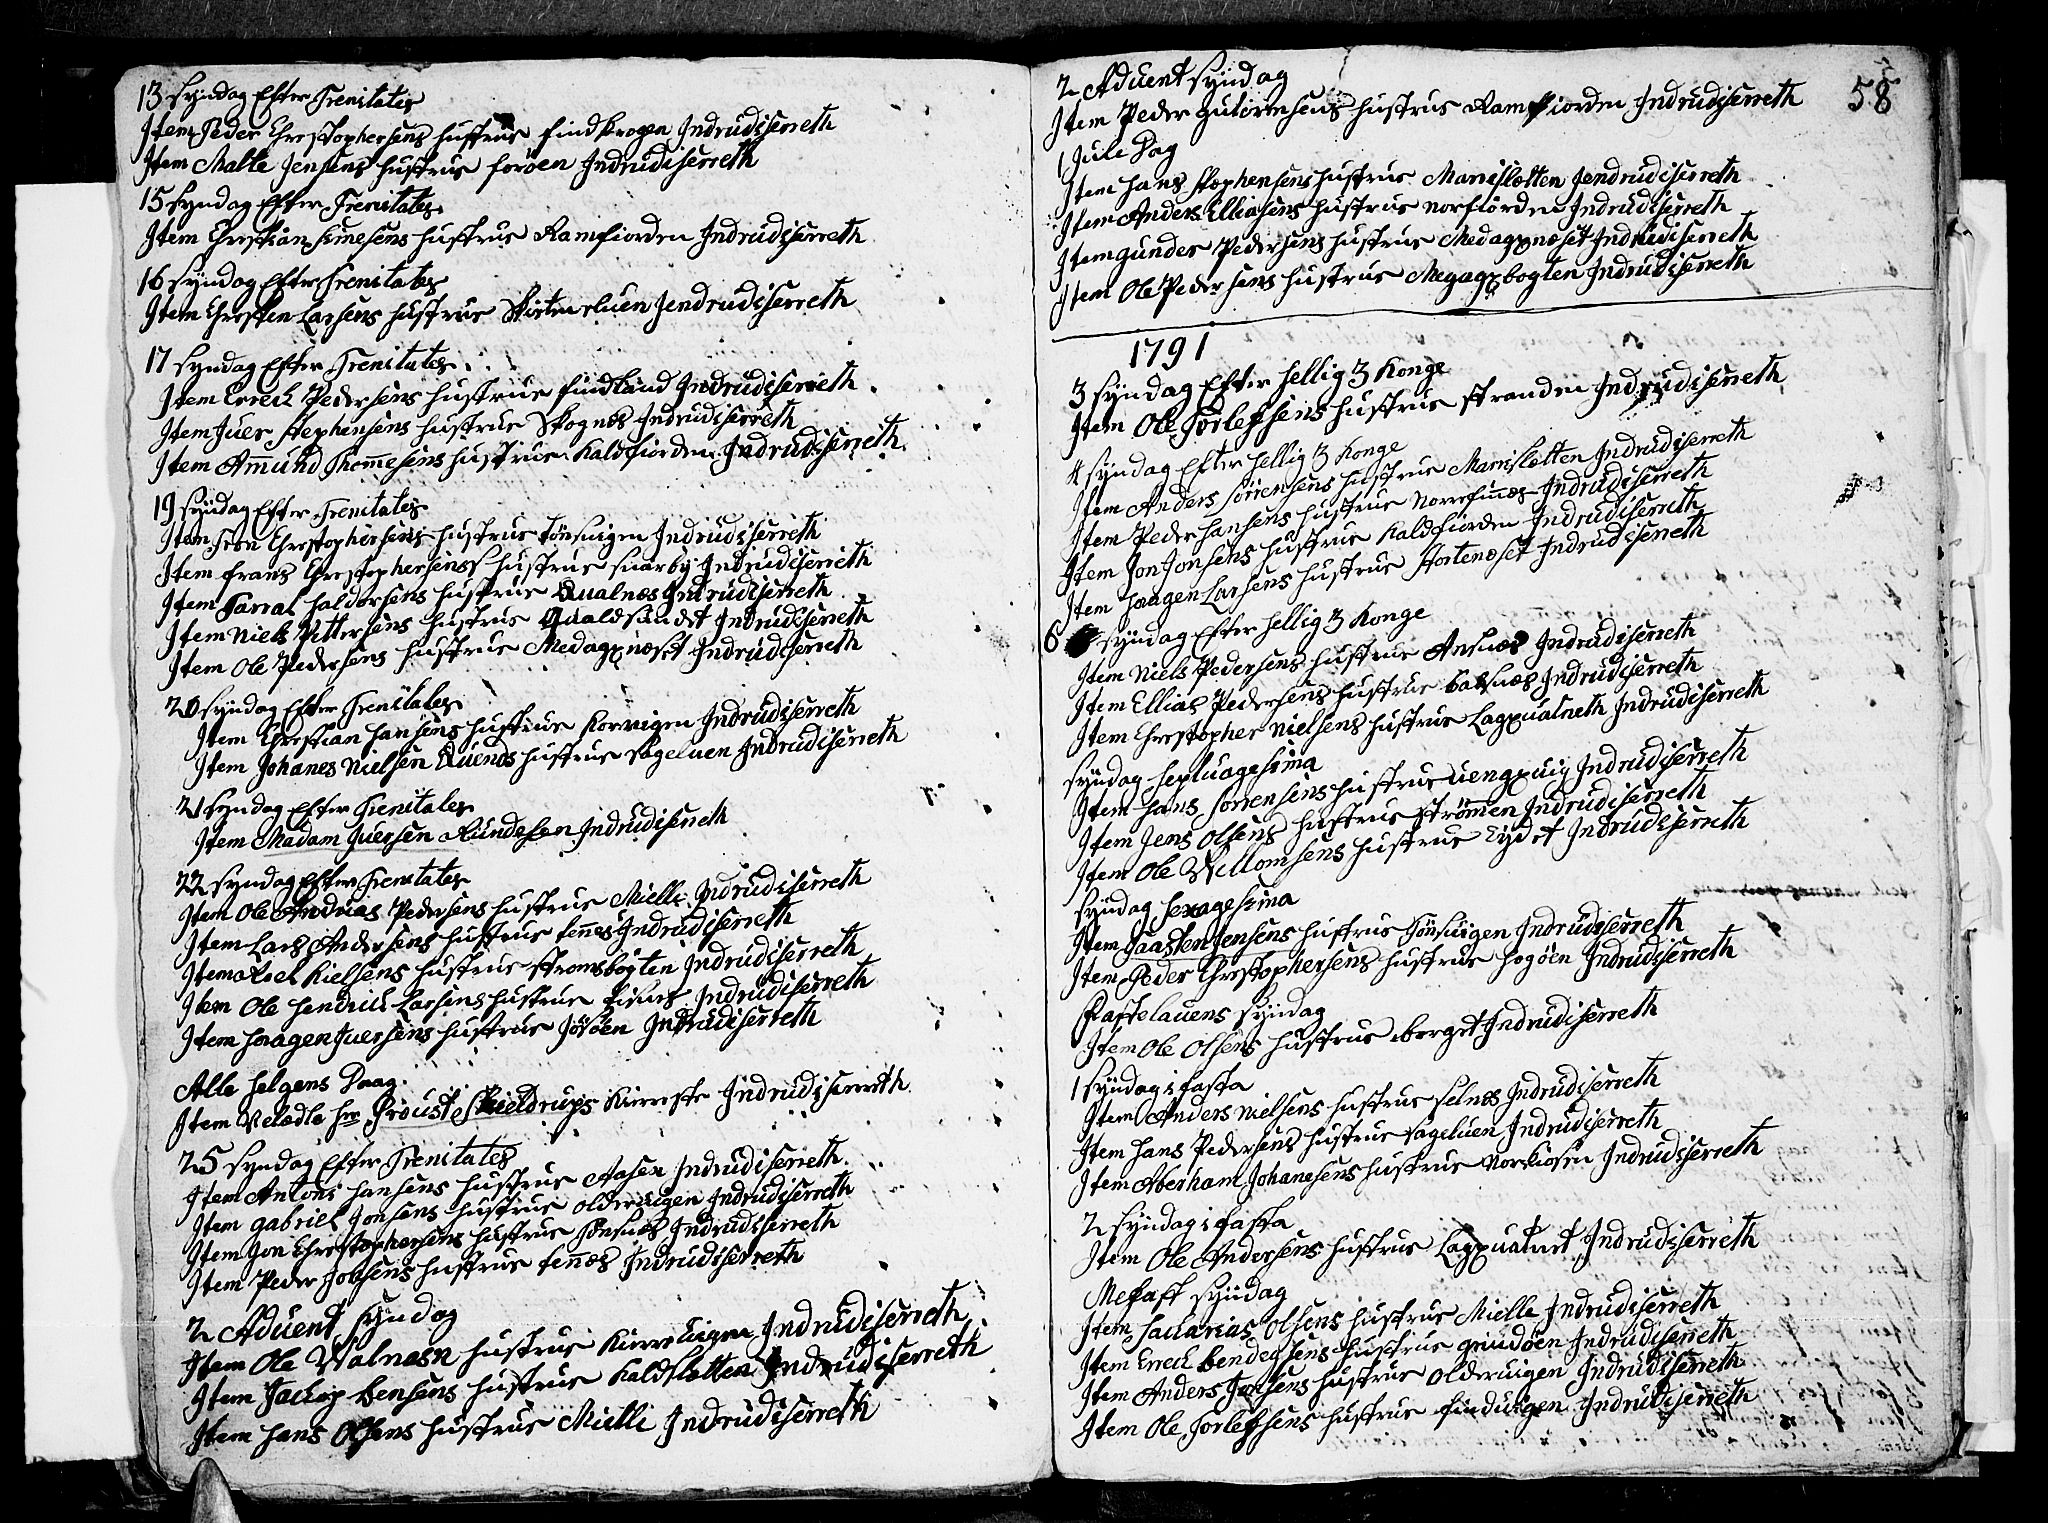 13 Syndag Efter Trenitates
Item Peder Chrestophersens hustrue findkrogen Indrudiserreth
Item Malle Jensens hustrue forøen Indrudiserreth
15 Syndag Efter Trenitates
Item Chrestian Simesens hustrue Ramfiorden Indrudiserreth
16 Syndag Efter Trenitates
Item Chresten Larsens hustrue Skiteneluen Jendrudiserreth
17 Syndag Efter Trenitates
Item Erreck Pedersens hustrue findland Indrudiserreth
Item Juer Stephensens hustrue Skognes Indrudiserreth
Item Amund Thommesens hustrue Kaldfiorden Indrudiserreth
19 Syndag Efter Trenitates
Item Tron Chrestophersens hustrue tønsuigen Indrudiserreth
Item frans Chrestophersens hustrue suarby Indrudiserreth
Item Tarral haldorsens hustrue Qualnæs Indrudiserreth
Item Niels Pittersens hustrue Qualdsundet Indrudiserreth
Item Ole Pedersens hustrue Medagxnæset Indrudiserreth
20 Syndag Efter Trenitates
Item Chrestian hansens hustrue Koruigen Indrudiserreth
Item Johanes Nielsen Quends hustrue Sageluen Indrudiserreth
21 Syndag Efter Trenitates
Item Madam Juersen Rundesen Indrudiserreth
22 Syndag Efter Trenitates
Item Ole Andreas Pedersens hustrue Mielle Indrudiserreth
Item Lars Andersens hustrue tennes Indrudiserreth
Item Axel Nielsens hustrue Stromsbogten Indrudiserreth
Item Ole hendrick Larsens hustrue fisnes Indrudiserreth
Item haagen Juersens hustrue Jøsøen Indrudiserreth
Alle helgens Daag
Item Velædle hr Proust Skieldrups Kierreste Indrudiserreth
25 Syndag Efter Trenitates
Item Antoni hansens hustrue Aasen Indrudiserreth
Item gabriel Jonsens hustrue olderuigen Indrudiserreth
Item Jon Chrestophersens hustrue Tonsnæs Indrudiserreth
Item Peder Jobsens hustrue tennæs Indrudiserreth
2 Aduent Syndag
Item Ole Valnæsn hustrue Kierreuigen Indrudiserreth
Item Jackop bensens hustrue Kaldsletten Indrudiserreth
Item hans Olsens hustrue Mielle Indrudiserreth
58
2 Aduent Syndag
Item Peder gutormsens hustrue Ramfiorden Indrudiserreth
1 Jule Dag
Item hans Stephensens hustrue Marrislætten Jendrudiserreth
Item Anders Elliasens hustrue Norfiorden Indrudiserreth
Item gunder Pedersens hustrue Medagxnæset Indrudiserreth
Item Ole Pedersens hustrue Megagxbogten Indrudiserreth
1791
3 Syndag Efter hellig 3 Konge
Item Ole Torlefsens hustrue Stranden Indrudiserreth
4 Syndag Efter hellig 3 Konge
Item Anders Sørrensens hustrue Marrislætten Indrudiserreth
Item Peder hansens hustrue Norrefinnes Indrudiserreth
Item Jon Jonsens hustrue Kaldfiorden Indrudiserreth
Item haagen Larsens hustrue Stortenæset Indrudiserreth
6 Syndag Efter hellig 3 Konge
Item Niels Pedersens hustrue Ansnæs Indrudiserreth
Item Ellias Pedersens hustrue balsnæs Indrudiserreth
Item Chrestopher Nielsens hustrue Lagxualneth Indrudiserreth
Syndag Septuagesima
Item hans Sørrensens hustrue uengxuig Indrudiserreth
Item Jens Olsens hustrue Strømen Indrudiserreth
Item Ole Vellomsens hustrue Eydet Indrudiserreth
Syndag Sexagesima
Item Taasten Jensens hustrue Tønsuigen Indrudiserreth
Item Peder Chrestophersens hustrue hogøen Indrudiserreth
Fastelauens Syndag
Item Ole Olsens hustrue berget Indrudiserreth
1 Syndag i fasta
Item Anders Nielsens hustrue Selnes Indrudiserreth
Item hans Pedersens hustrue Sageluen Indrudiserreth
Item Aberham Johanesens hustrue Norkiosen Indrudiserreth
2 Syndag i fasta
Item Ole Andersens hustrue Lagxualnet Indrudiserreth
Mefast Syndag
Item Sacharias Olsens hustrue Mielle Indrudiserreth
Item Erreck bendegsens hustrue grindøen Indrudiserreth
Item Anders Jonsens hustrue olderuigen Indrudiserreth
Item Ole Torlefsens hustrue finduigen Indrudiserreth